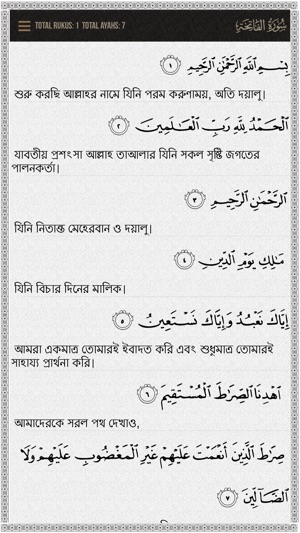 TOTAL RUKUS: 1 TOTAL AYAHS: 7 سُورَةُ الفَاتِحَةِ
بِسْمِ ٱللَّهِ ٱلرَّحْمَٰنِ ٱلرَّحِيمِ ١
শুরু করছি আল্লাহর নামে যিনি পরম করুণাময়, অতি দয়ালু।
ٱلْحَمْدُ لِلَّهِ رَبِّ ٱلْعَٰلَمِينَ ٢
যাবতীয় প্রশংসা আল্লাহ তাআলার যিনি সকল সৃষ্টি জগতের
পালনকর্তা।
ٱلرَّحْمَٰنِ ٱلرَّحِيمِ ٣
যিনি নিতান্ত মেহেরবান ও দয়ালু।
مَٰلِكِ يَوْمِ ٱلدِّينِ ٤
যিনি বিচার দিনের মালিক।
إِيَّاكَ نَعْبُدُ وَإِيَّاكَ نَسْتَعِينُ ٥
আমরা একমাত্র তোমারই ইবাদত করি এবং শুধুমাত্র তোমারই
সাহায্য প্রার্থনা করি।
ٱهْدِنَا ٱلصِّرَٰطَ ٱلْمُسْتَقِيمَ ٦
আমাদেরকে সরল পথ দেখাও,
صِرَٰطَ ٱلَّذِينَ أَنْعَمْتَ عَلَيْهِمْ غَيْرِ ٱلْمَغْضُوبِ عَلَيْهِمْ وَلَا
ٱلضَّآلِّينَ ٧